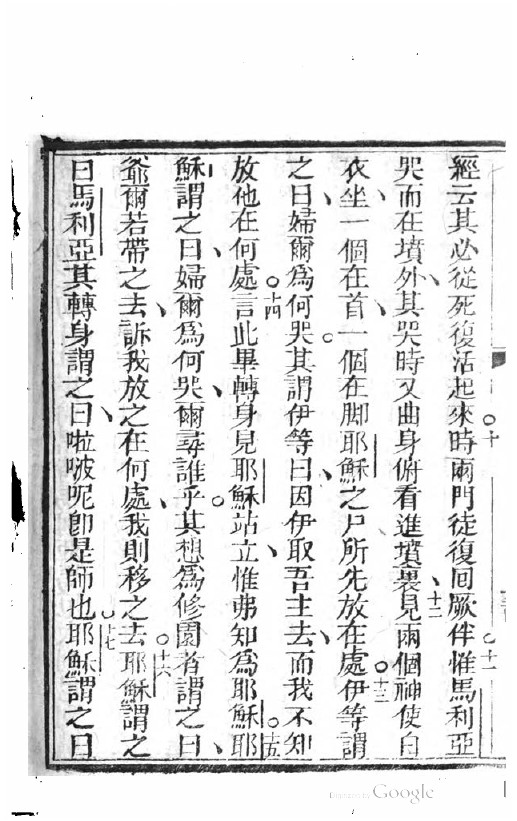 經云其必從死復活起來時○十兩門徒復回厥伴○十一惟馬利亞
哭而在墳外、其哭時又曲身俯看進墳裏、○十二見兩個神使白
衣、坐一個在首、一個在脚、耶穌之尸所先放在處○十三伊等謂
之曰、婦爾爲何哭。其謂伊等曰、因伊取吾主去、而我不知
放他在何處○十四言此畢、轉身見耶穌站立、惟弗知爲耶穌○十五耶
穌謂之曰、婦爾爲何哭、爾尋誰乎。其想爲修園者、謂之曰、
爺爾若帶之去、訴我放之在何處、我則移之去○十六耶穌謂之
曰馬利亞、其轉身謂之曰、啦啵呢、卽是師也○十七耶穌謂之曰
Digitized by Google